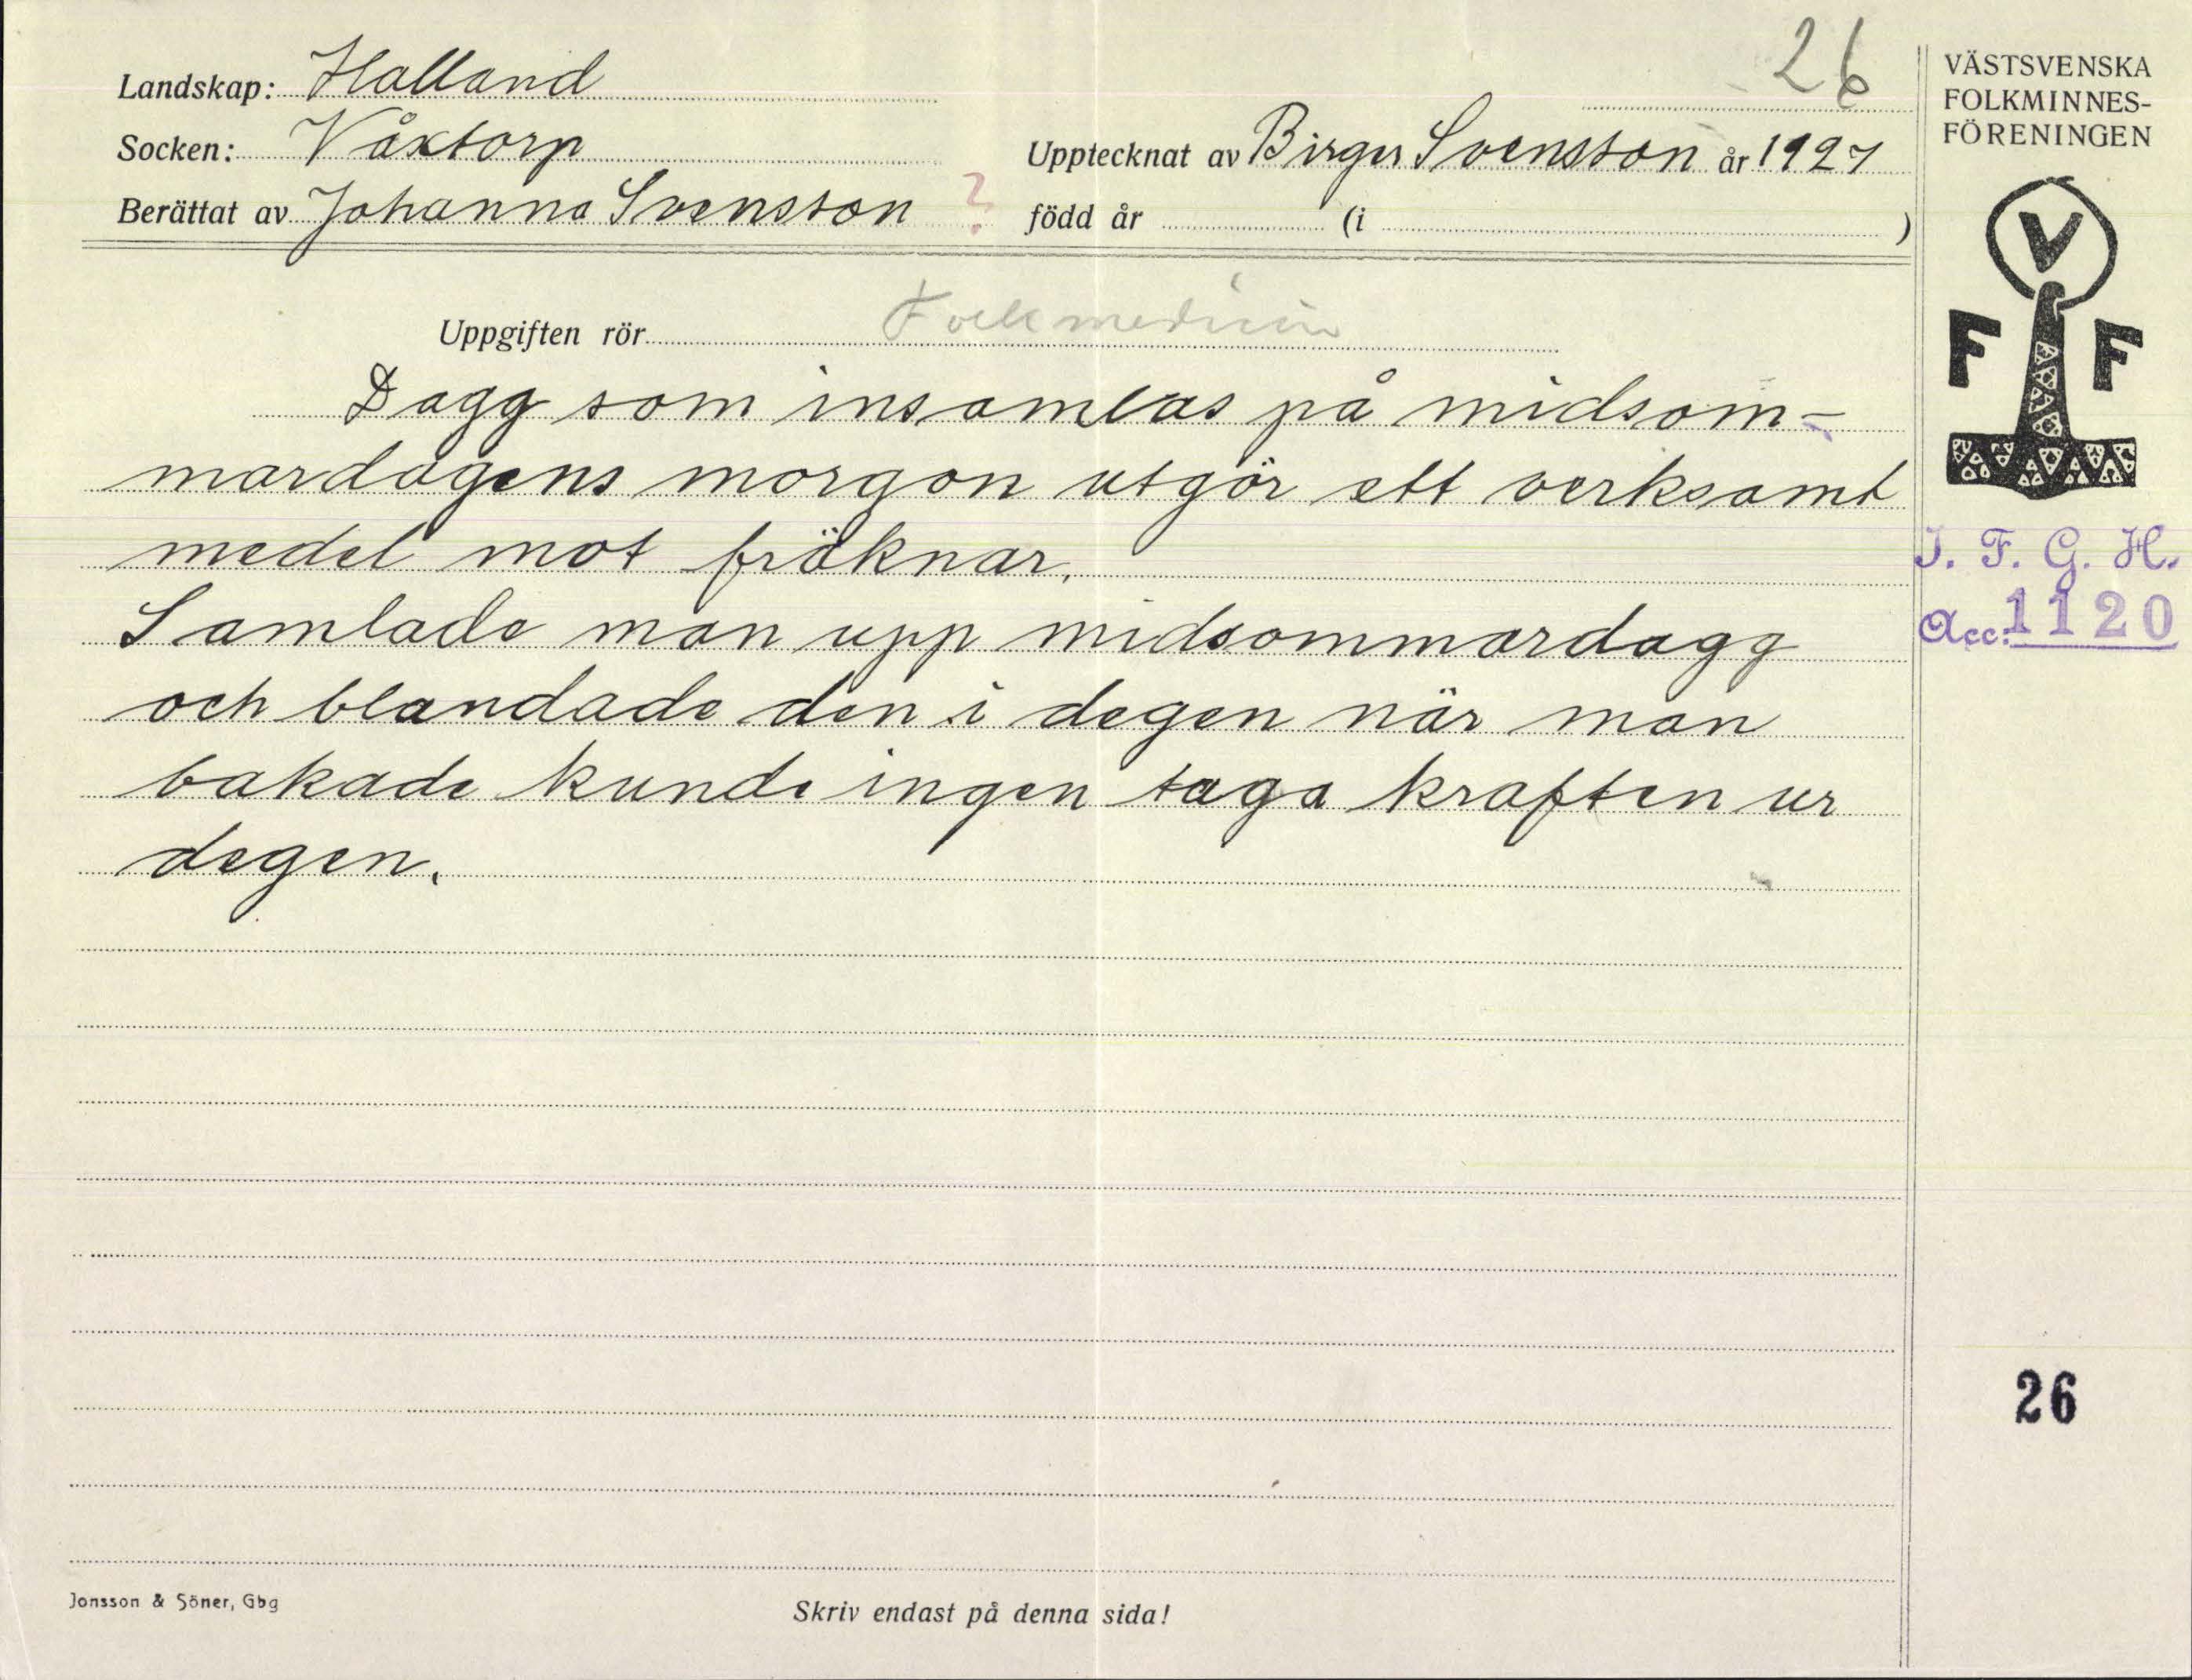 26
Landskap: Halland
Socken: Våxtorp
Upptecknat av Birger Svensson år 1927
Berättat av Johanna Svensson ?
född år (i )
Uppgiften rör Folkmedicin
Dagg som insamlas på midsom-
mardagens morgon utgör ett verksamt
medel mot fräknar.
Samlade man upp midsommardagg
och blandade den i degen när man
bakade kunde ingen taga kraften ur
degen.
Jonsson & Söner, Gbg
Skriv endast på denna sida!
VÄSTSVENSKA
FOLKMINNES-
FÖRENINGEN
V
F F
I. F. G. H.
Acc: 1120
26